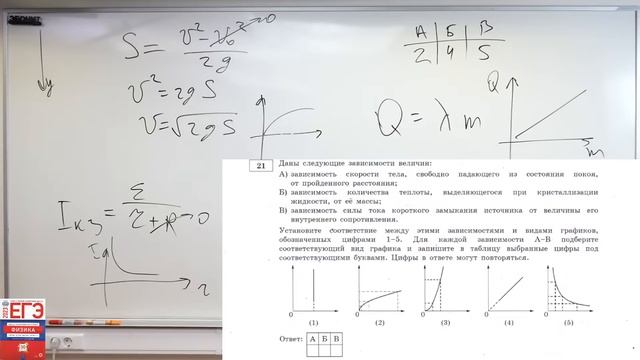 S = (v² − v₀²→0) / 2g
v² = 2gS
v = √2gS
y
А Б В
2 4 5
Q = λ m
Q
m
I кз = ε / (r + R→0)
I
r
21 Даны следующие зависимости величин:
А) зависимость скорости тела, свободно падающего из состояния покоя,
от пройденного расстояния;
Б) зависимость количества теплоты, выделяющегося при кристаллизации
жидкости, от её массы;
В) зависимость силы тока короткого замыкания источника от величины его
внутреннего сопротивления.
Установите соответствие между этими зависимостями и видами графиков,
обозначенных цифрами 1–5. Для каждой зависимости А–В подберите
соответствующий вид графика и запишите в таблицу выбранные цифры под
соответствующими буквами. Цифры в ответе могут повторяться.
0 0 0 0 0
(1) (2) (3) (4) (5)
Ответ: А Б В
2023
ЕГЭ
ФИЗИКА